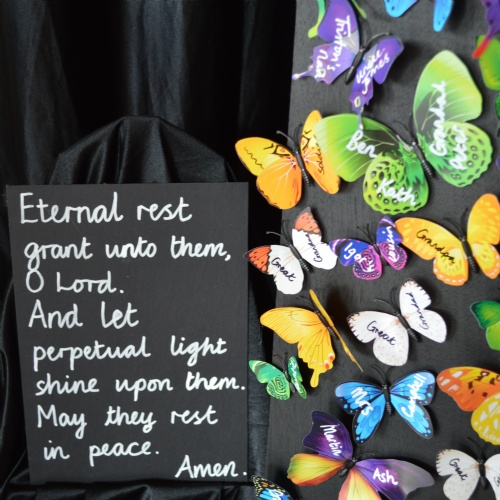 Eternal rest
grant unto them,
O Lord.
And let
perpetual light
shine upon them.
May they rest
in peace.
Amen.
Nan
Ben
Kath
Grandad
Peter
Great
Grandad
Grandpa
Great
Grandad
Mrs
Martin
Ash